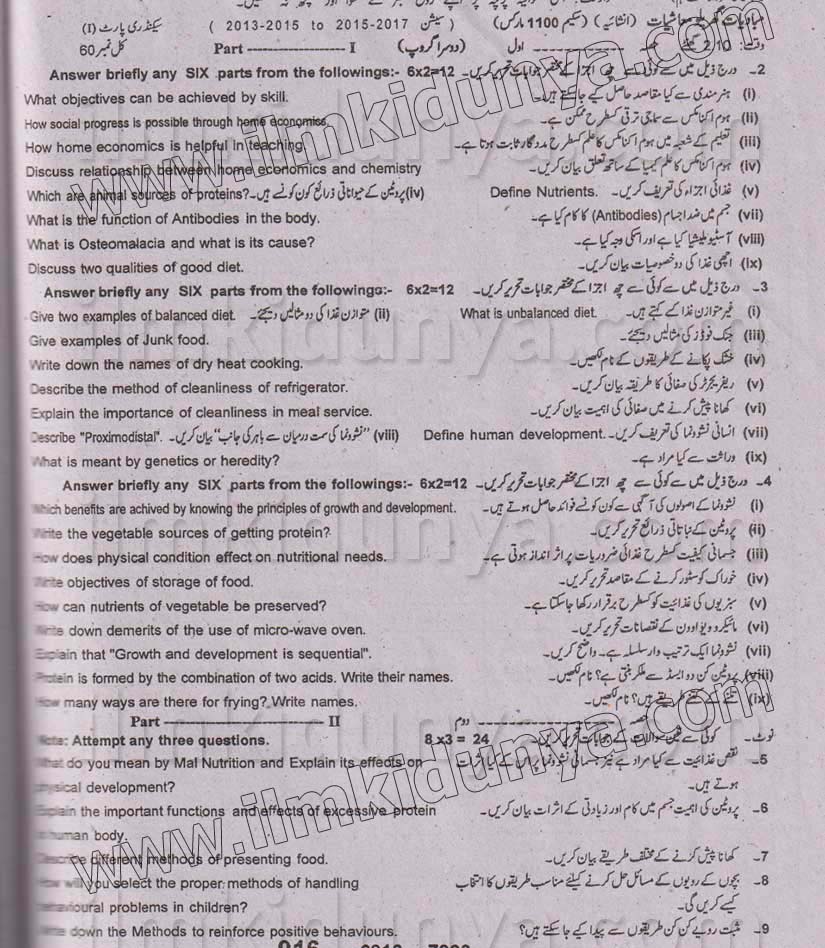 سیکنڈری پارٹ (I) ( 2013-2015 to 2015-2017 سیشن ) (سکیم 1100 مارکس) (انشائیہ)
کل نمبر 60 Part ------------------- I (دوسرا گروپ) حصہ ------------- اول وقت: 2:10 گھنٹے
Answer briefly any SIX parts from the followings:- 6x2=12 2- درج ذیل میں سے کوئی سے چھ اجزا کے مختصر جوابات تحریر کریں۔
What objectives can be achieved by skill. (i) ہنرمندی سے کیا مقاصد حاصل کیے جا سکتے ہیں۔
How social progress is possible through home economics. (ii) ہوم اکنامکس سے سماجی ترقی کسطرح ممکن ہے۔
How home economics is helpful in teaching. (iii) تعلیم کے شعبہ میں ہوم اکنامکس کا علم کسطرح مددگار ثابت ہوتا ہے۔
Discuss relationship between home economics and chemistry (iv) ہوم اکنامکس کا علم کیمیا کے ساتھ تعلق بیان کریں۔
Which are animal sources of proteins? پروٹین کے حیواناتی ذرائع کون کونسے ہیں۔ (iv) Define Nutrients. (v) غذائی اجزاء کی تعریف کریں۔
What is the function of Antibodies in the body. (vii) جسم میں ضد اجسام (Antibodies) کا کام کیا ہے۔
What is Osteomalacia and what is its cause? (viii) آسٹیو ملیشیا کیا ہے اور اسکی وجہ کیا ہے۔
Discuss two qualities of good diet. (ix) اچھی غذا کی دو خصوصیات بیان کریں۔
Answer briefly any SIX parts from the followings:- 6x2=12 3- درج ذیل میں سے کوئی سے چھ اجزا کے مختصر جوابات تحریر کریں۔
Give two examples of balanced diet. (ii) متوازن غذا کی دو مثالیں دیجئے۔ What is unbalanced diet. (i) غیر متوازن غذا کسے کہتے ہیں۔
Give examples of Junk food. (iii) جنک فوڈز کی مثالیں دیجئے۔
Write down the names of dry heat cooking. (iv) خشک پکانے کے طریقوں کے نام لکھیں۔
Describe the method of cleanliness of refrigerator. (v) ریفریجریٹر کی صفائی کا طریقہ بیان کریں۔
Explain the importance of cleanliness in meal service. (vi) کھانا پیش کرنے میں صفائی کی اہمیت بیان کریں۔
Describe "Proximodistal". (viii) "نشوونما کی سمت درمیان سے باہر کی جانب" بیان کریں۔ Define human development. (vii) انسانی نشوونما کی تعریف کریں۔
What is meant by genetics or heredity? (ix) وراثت سے کیا مراد ہے۔
Answer briefly any SIX parts from the followings:- 6x2=12 4- درج ذیل میں سے کوئی سے چھ اجزا کے مختصر جوابات تحریر کریں۔
Which benefits are achived by knowing the principles of growth and development. (i) نشوونما کے اصولوں کی آگہی سے کون کونسے فوائد حاصل ہوتے ہیں۔
Write the vegetable sources of getting protein? (ii) پروٹین کے نباتاتی ذرائع تحریر کریں۔
How does physical condition effect on nutritional needs. (iii) جسمانی کیفیت کسطرح غذائی ضروریات پر اثر انداز ہوتی ہے۔
Write objectives of storage of food. (iv) خوراک کو سٹور کرنے کے مقاصد تحریر کریں۔
How can nutrients of vegetable be preserved? (v) سبزیوں کی غذائیت کو کسطرح برقرار رکھا جا سکتا ہے۔
Write down demerits of the use of micro-wave oven. (vi) مائیکرو ویو اوون کے نقصانات تحریر کریں۔
Explain that "Growth and development is sequential". (vii) نشوونما ایک ترتیب وار سلسلہ ہے۔ واضح کریں۔
Protein is formed by the combination of two acids. Write their names. (viii) پروٹین کن دو ایسڈ سے ملکر بنتی ہے؟ نام لکھیں۔
How many ways are there for frying? Write names. (ix) تلنے کے کتنے طریقے ہیں؟ نام لکھیں۔
Part ------------------- II حصہ ------------- دوم
Note: Attempt any three questions. 8 x3 = 24 نوٹ۔ کوئی سے تین سوالات کے جوابات تحریر کریں۔
What do you mean by Mal Nutrition and Explain its effects on 5- نقص غذائیت سے کیا مراد ہے نیز جسمانی نشوونما پر اس کے کیا اثرات
physical development? ہوتے ہیں۔
Explain the important functions and effects of excessive protein 6- پروٹین کی اہمیت جسم میں کام اور زیادتی کے اثرات بیان کریں۔
in human body.
Describe different methods of presenting food. 7- کھانا پیش کرنے کے مختلف طریقے بیان کریں۔
How will you select the proper methods of handling 8- بچوں کے رویوں کے مسائل حل کرنے کیلئے مناسب طریقوں کا انتخاب
behavioural problems in children? کیسے کریں گی۔
Write down the Methods to reinforce positive behaviours. 9- مثبت رویے کن کن طریقوں سے پیدا کیے جا سکتے ہیں؟
www.ilmkidunya.com
www.ilmkidunya.com
ilmkidunya.com